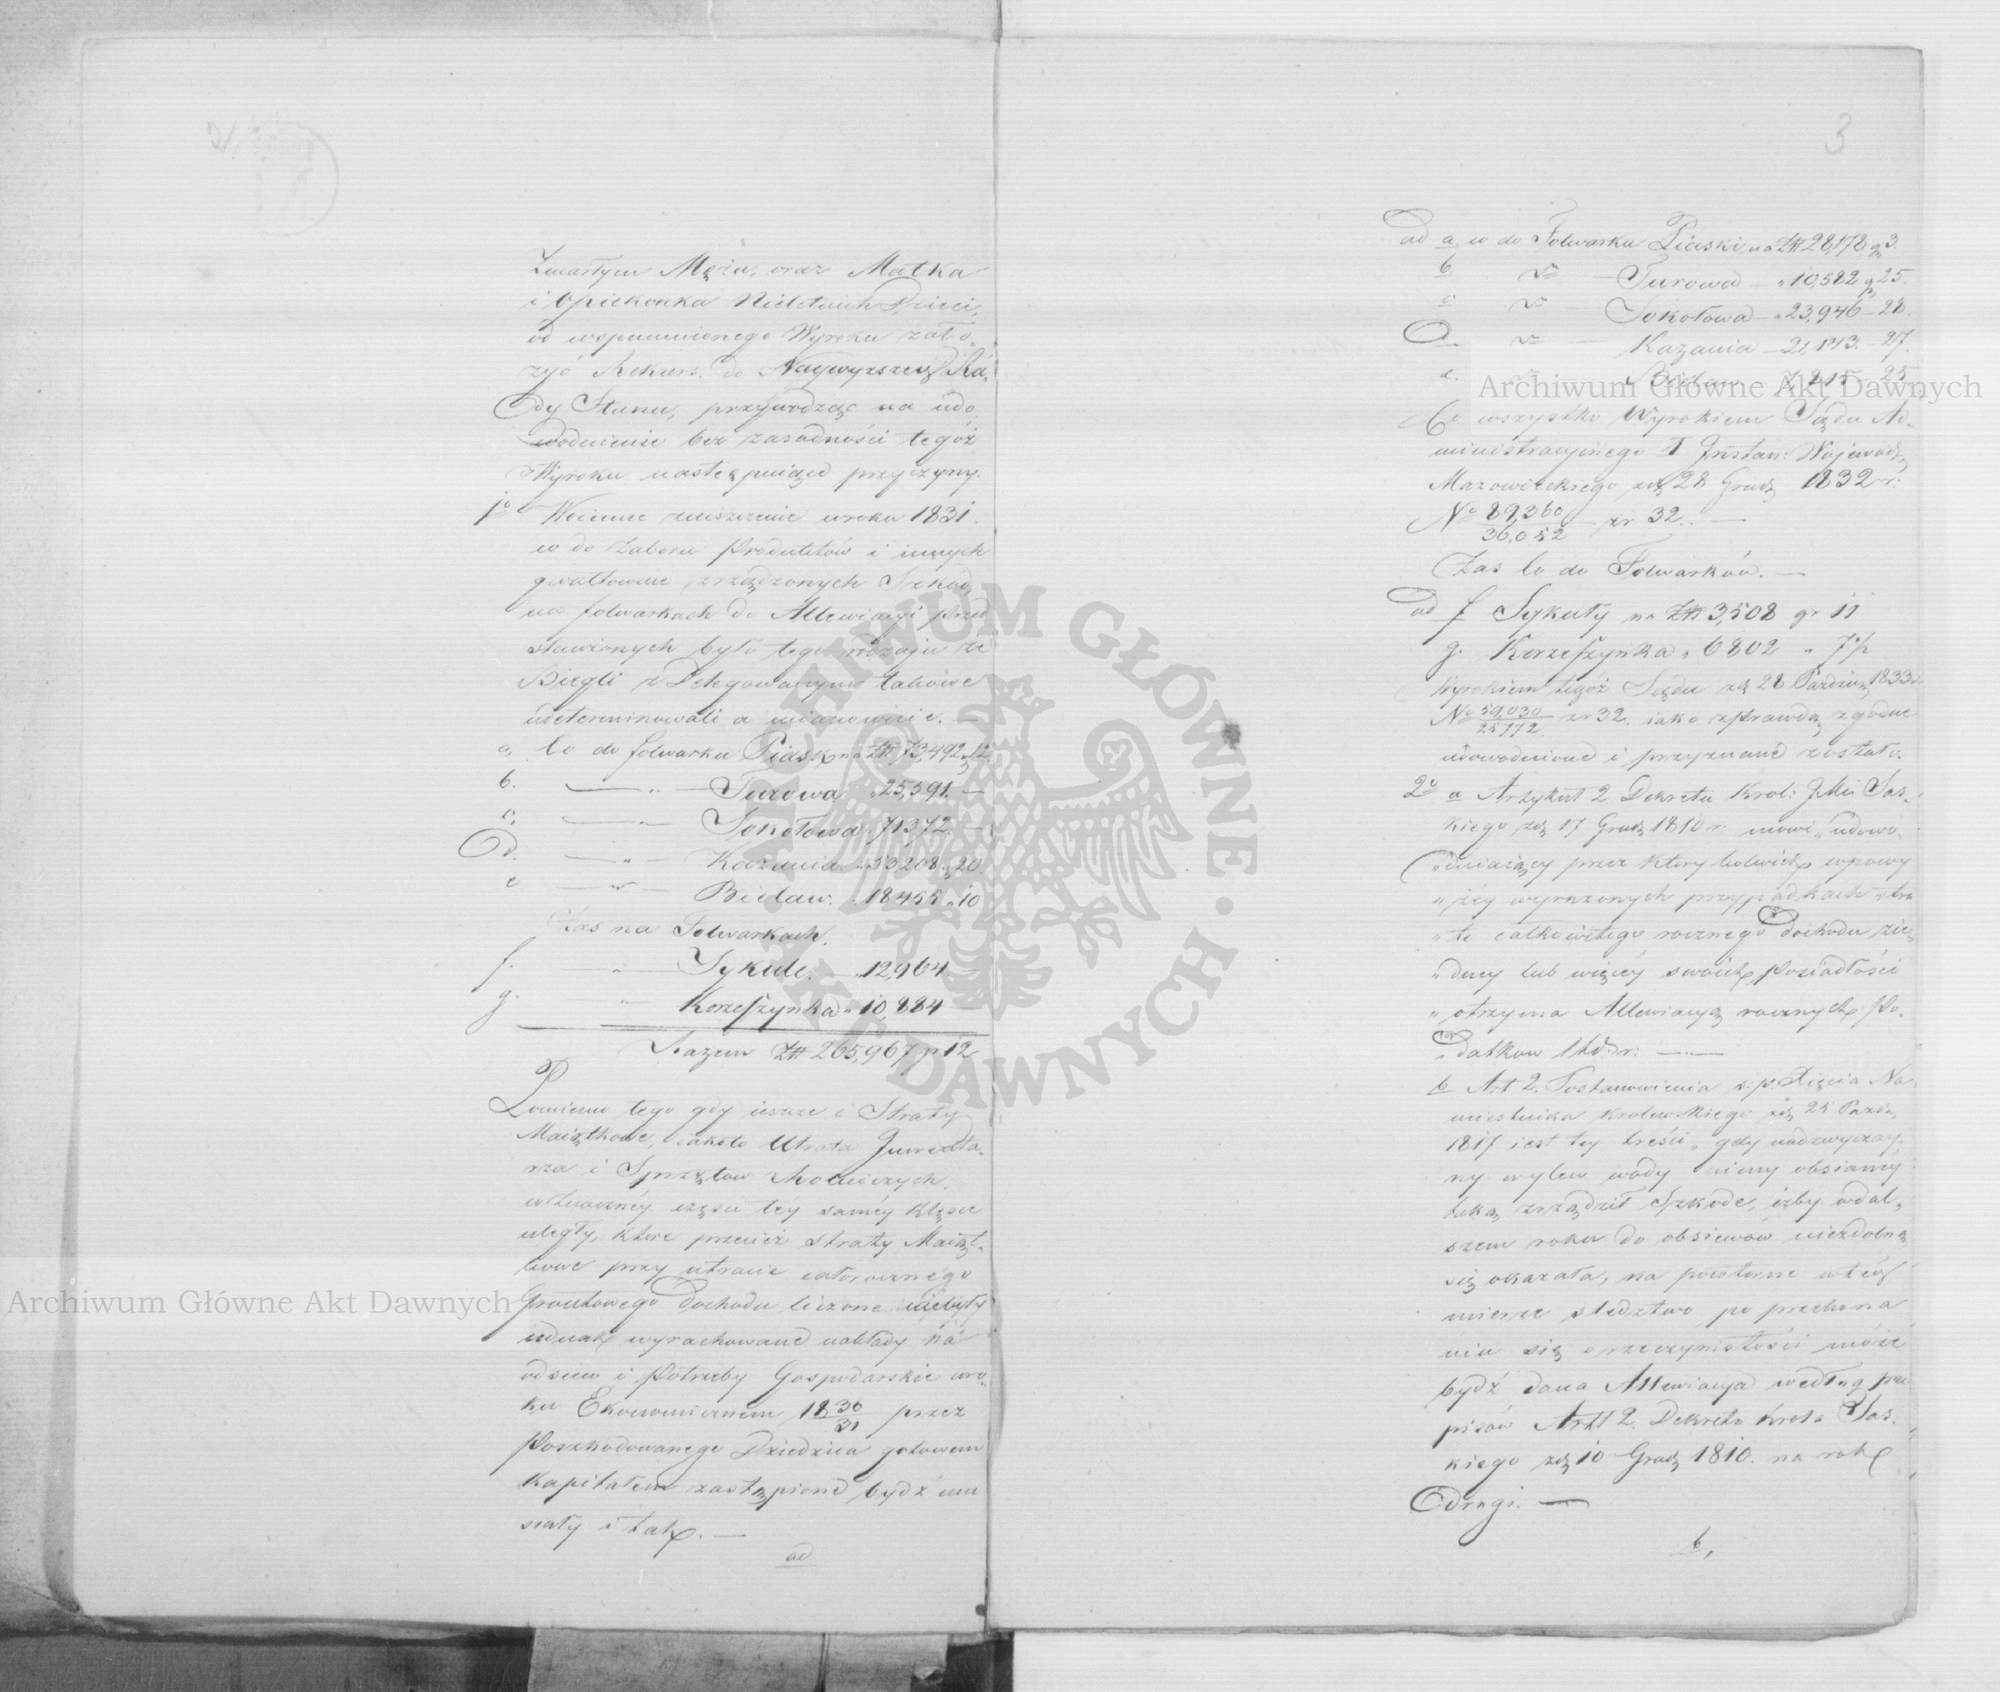 zmarłym Mężu, oraz Matka
i Opiekunka Nieletnich Dzieci,
od wspomnionego Wyroku zało-
żyć Rekurs do Naywyższey Ra-
dy Stanu, przywodząc na udo-
wodnienie bez zasadności tegoż
Wyroku następuiące przyczyny.
1o Woienne zniszczenie w roku 1831.
co do Zaboru Produktów i innych
gwałtownie zrządzonych Szkod,
na folwarkach do Allewiacyi przed
stawionych było tego rodzaju że
Biegli z Delegowanym takowe
udeterminowali a mianowicie. —
a, Co do folwarku Piaski na Złp 73,492 g 12
b. — " — Turowa " 25,591. —
c, — " — Sokołowa " 71372 —
d. — " — Kazania " 53208 g 20.
e — " — Bielaw. " 18455 " 10
Zas na Folwarkach.
f. " — Sykule. — " 12,964 —
g. " — Korzeszynka " 10,884 —
Razem Złp 265,967 gr 12
Pomimo tego gdy ieszcze i Straty
Maiątkowe, iakoto Utrata Inwenta-
rza i Sprzętow Rolniczych
w znaczney części tey samey klęsce
uległy, które przecież straty Maiąt-
kowe przy utracie całorocznego
Gruntowego Dochodu liczone niebyły
iednak wyrachowane nakłady na
odsiew i Potrzeby Gospodarskie w ro-
ku Ekonomicznem 18 30/31 przez
Poszkodowanego Dziedzica gotowem
Kapitałem zastąpione bydź mu
siały i tak. —
ad
3
ad a, co do Folwarku Piaski na Złp 28,178 g 3.
b. — Turowa — " 10,582 g 25.
c. — Sokołowa — " 23,946 — 28.
d. — Kazania — 21,143. — 27.
e. Bielaw 7,215 — 25
Co wszystko Wyrokiem Sądu Ad-
ministracyinego I Instan: Wojewódz
Mazowieckiego z d 28 Grud 1832 r:
No 89,360/36,052 — zr 32. —
Zas Co do Folwarków. —
ad f Sykuły na Złp 3,508 gr 11
g. Korzeszynka " 6802 " 7½
Wyrokiem tegoż Sądu z d 28 Paździer 1833 r
No 59,030/25772 zr 32. iako z prawdą zgodne
udowodnione i przyznane zostało.
2o a Artykuł 2. Dekretu Krol: JMci Sas-
kiego z d 17 Grud 1810 r: mówi "udowo-
"dniaiący przez ktorykolwiek w powy
"żey wyrażonych przypadkach stra
"tę całkowitego rocznego Dochodu ze ie-
"dney lub więcey swoich Posiadłości
"otrzyma Allewiacyą rocznych Po-
"datkow itd: r: —
b Art 2. Postanowienia ś: p. Xięcia Na-
miestnika Krolewskiego z d 25 Paźdz
1817 iest tey treści "gdy nadzwyczay-
ny wylew wody ziemi obsianéy
taką zrządził Szkodę, iżby w dal-
szem roku do obsiewów niezdolną
się okazała, na powtorne w téy
mierze śledztwo po przekona
niu się o rzeczywistości może
bydź dana Allewiacya według prze
pisów Artt 2. Dekretu Krola Sas-
kiego z d 10 Grud 1810. na rok
drugi. —
b,
Archiwum Główne Akt Dawnych
Archiwum Główne Akt Dawnych
ARCHIWUM GŁÓWNE AKT DAWNYCH